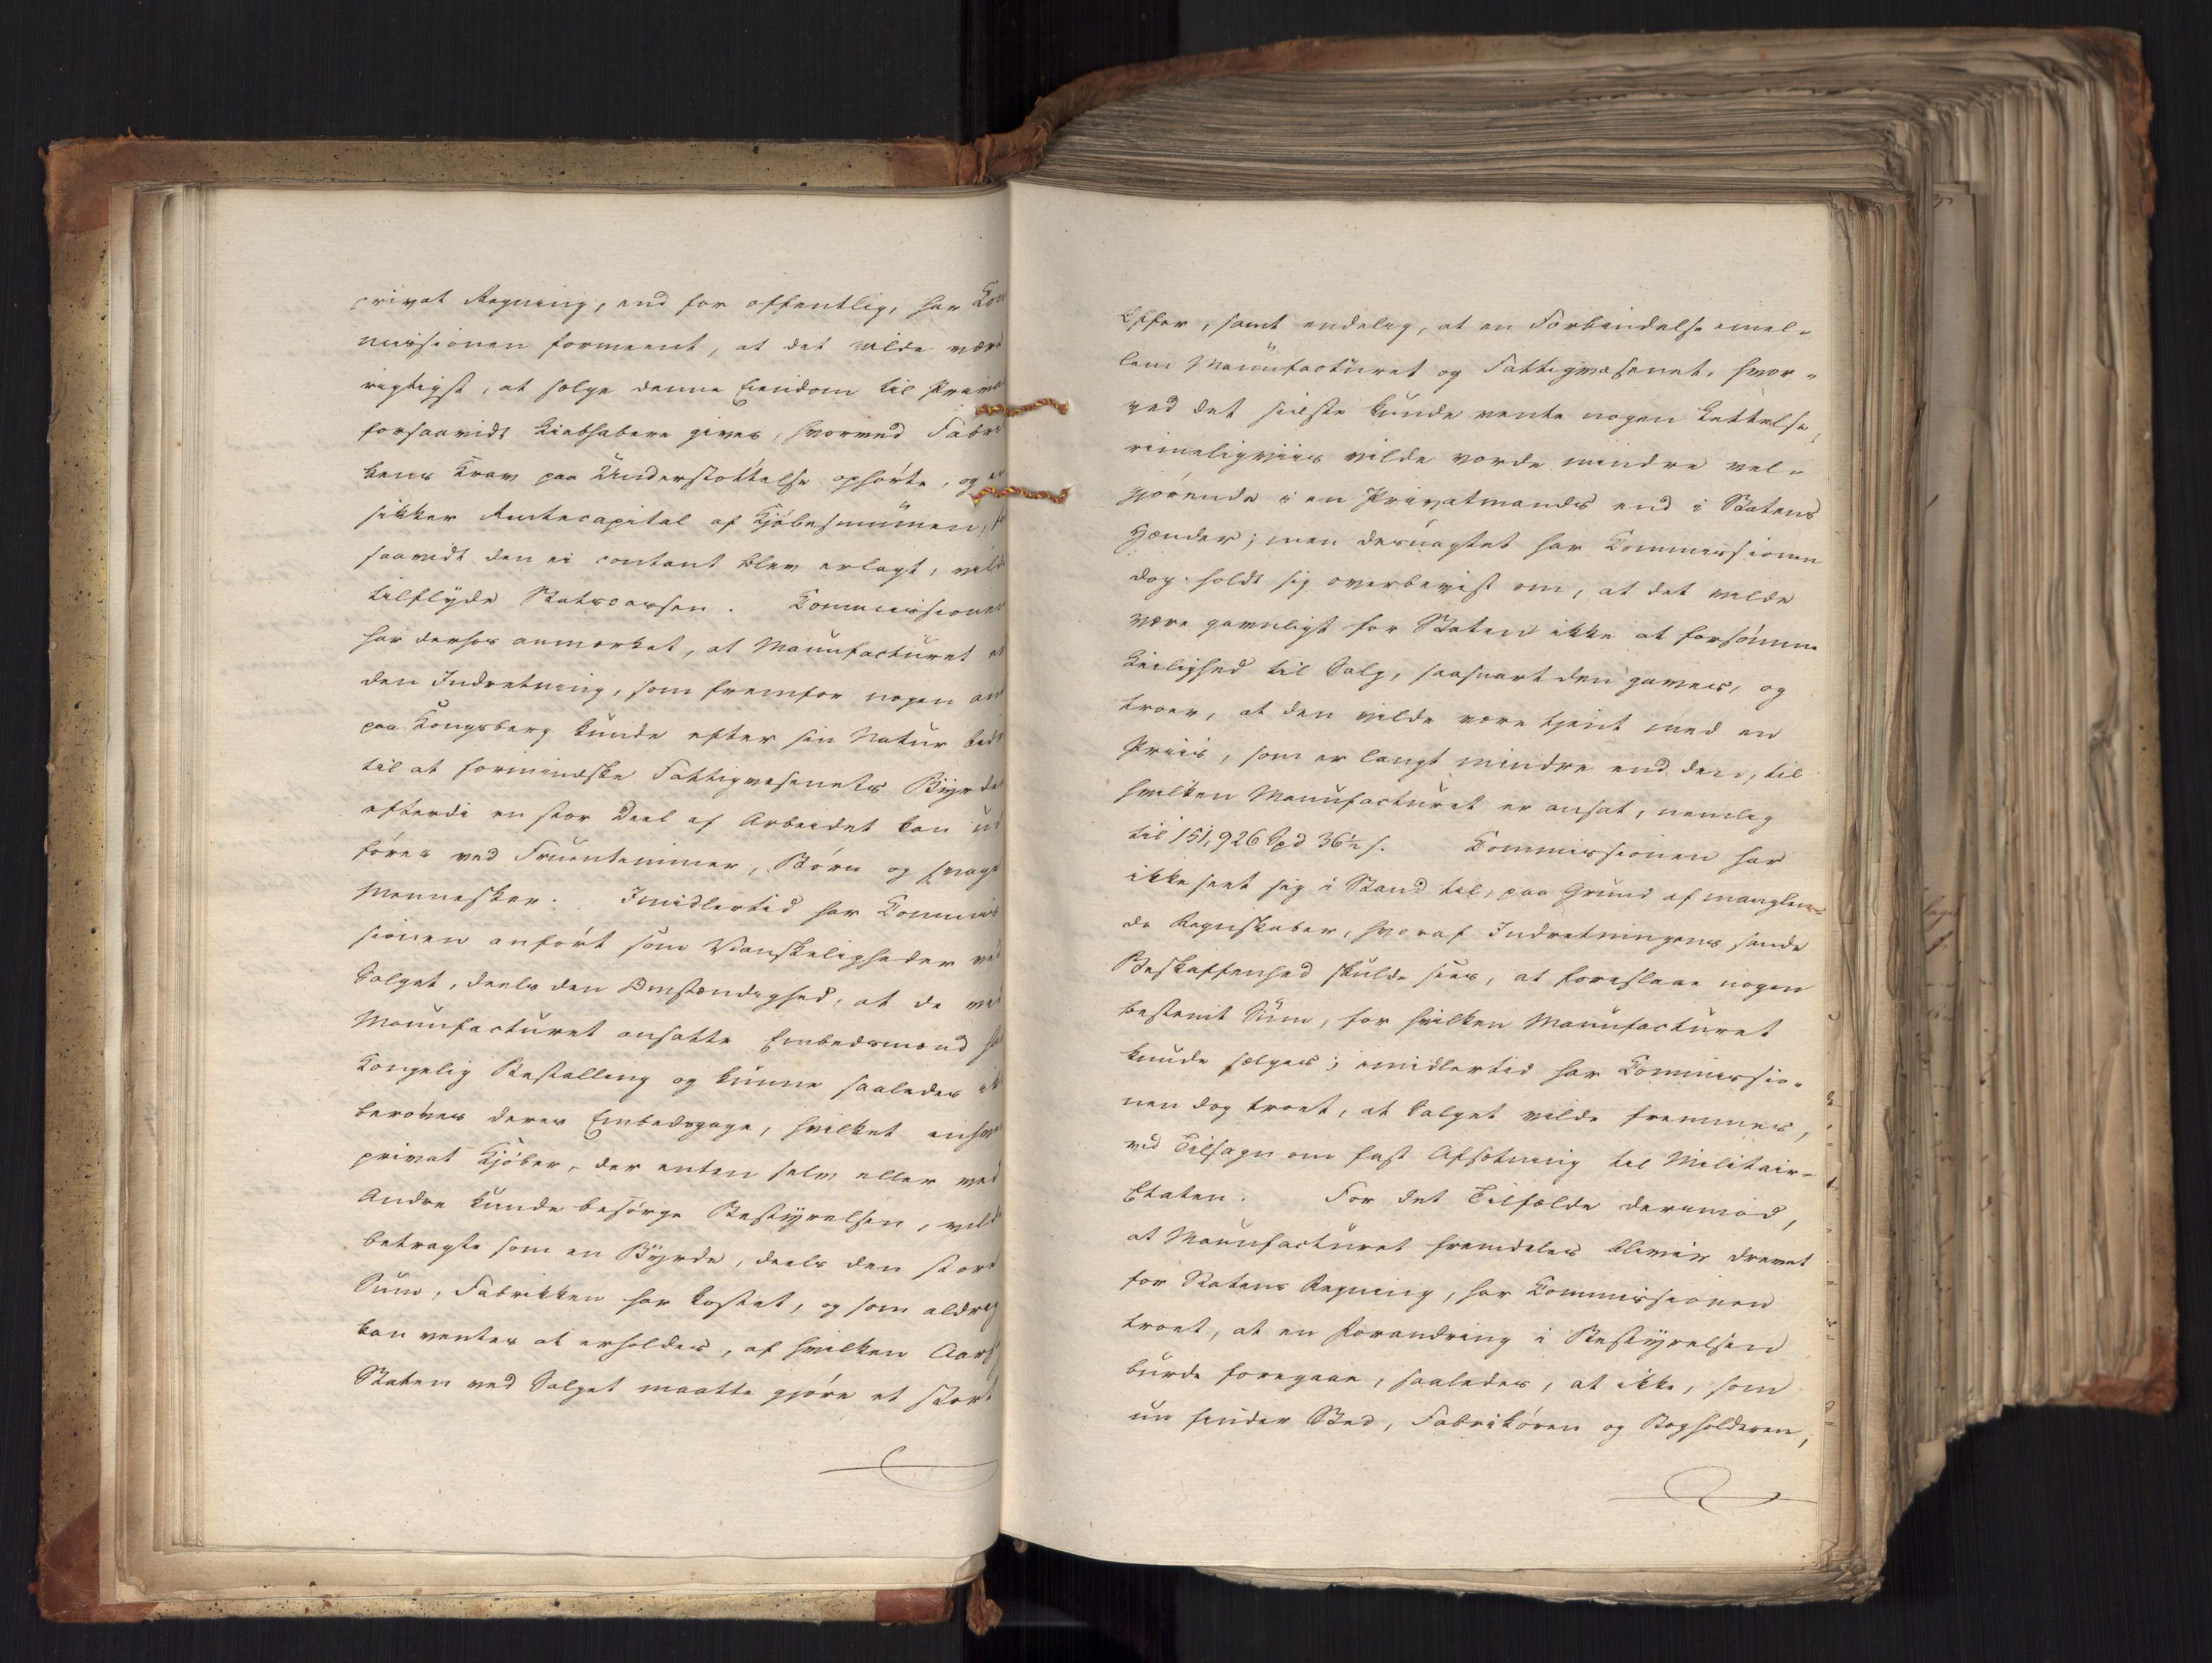 privat Regning, end for offentlig, har Kom
missionen formeent, at det vilde være
rigtigst, at sælge denne Eiendom til Private
forsaavidt Kiøbhabere gives, hvorved Fabri
kens Krav paa Understøttelse ophørte, og en
sikker Rentecapital af Kjøbesummen, for
saavidt den ei contant blev erlagt, vilde
tilflyde Statscassen. Kommissionen
har derhos anmærket, at Manufacturet er
den Indretning, som fremfor nogen anden
paa Kongsberg kunde efter sin Natur bidr
til at formindske Fattigvæsenets Byrder
efterdi en stor Deel af Arbeidet kan ud
føres ved Fruentimmer, Børn og svage
Mennesker. Imidlertid har Kommis
sionen anført som Vanskeligheder ved
Salget, deels den Omstændighed, at de ved
Manufacturet ansatte Embedsmænd ha
Kongelig Bestalling og kunne saaledes ik
berøves deres Embedsgage, hvilket enhver
privat Kjøber, der enten selv eller ved
Andre kunde besørge Bestyrelsen, vilde
betragte som en Byrde, deels den store
Sum, Fabrikken har kostet, og som aldrig
kan ventes at erholdes, af hvilken Aarsag
Staten ved Salget maatte gjøre et stort
Offer, samt endelig, at en Forbindelse imel-
lem Manufacturet og Fattigvæsenet, hvor-
ved det sidste kunde vente nogen Lettelse,
rimeligviis vilde vorde mindre vel-
gjørende i en Privatmands end i Statens
Hænder; men desuagtet har Kommissionen
dog holdt sig overbevist om, at det vilde
være gavnligt for Staten ikke at forsømme
Leilighed til Salg, saasnart den gaves, og
troer, at den vilde være tjent med en
Priis, som er langt mindre end den, til
hvilken Manufacturet er ansat, nemlig
til 151,926 Spd 36½ s. Kommissionen har
ikke seet sig i Stand til, paa Grund af manglen-
de Regnskaber, hvoraf Indretningens sande
Beskaffenhed skulde sees, at foreslaae nogen
bestemt Sum, for hvilken Manufacturet
kunde sælges; imidlertid har Kommissio-
nen dog troet, at Salget vilde fremmes,
ved Tilsagn om fast Afsætning til Militair-
Etaten. For det Tilfælde derimod,
at Manufacturet fremdeles bliver drevet
for Statens Regning, har Kommissionen
troet, at en Forandring i Bestyrelsen
burde foregaae, saaledes, at ikke, som
nu finder Sted, Fabrikøren og Bogholderen,